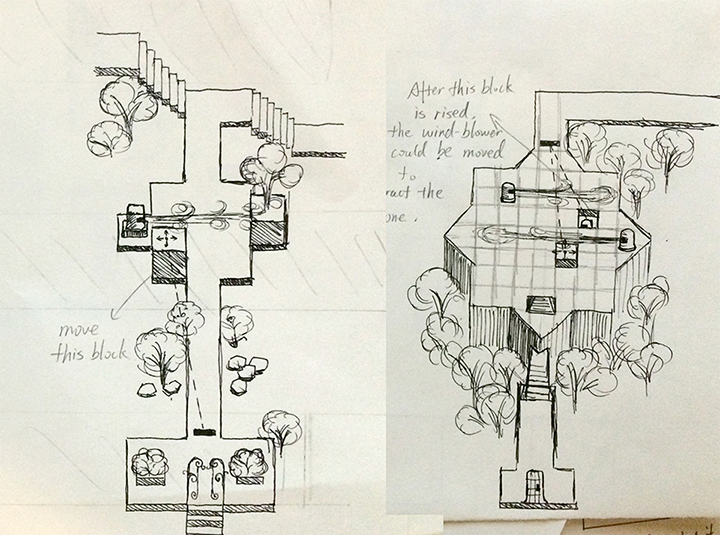 move
this block
After this block
is rised,
the wind-blower
could be moved
to
ract the
one.